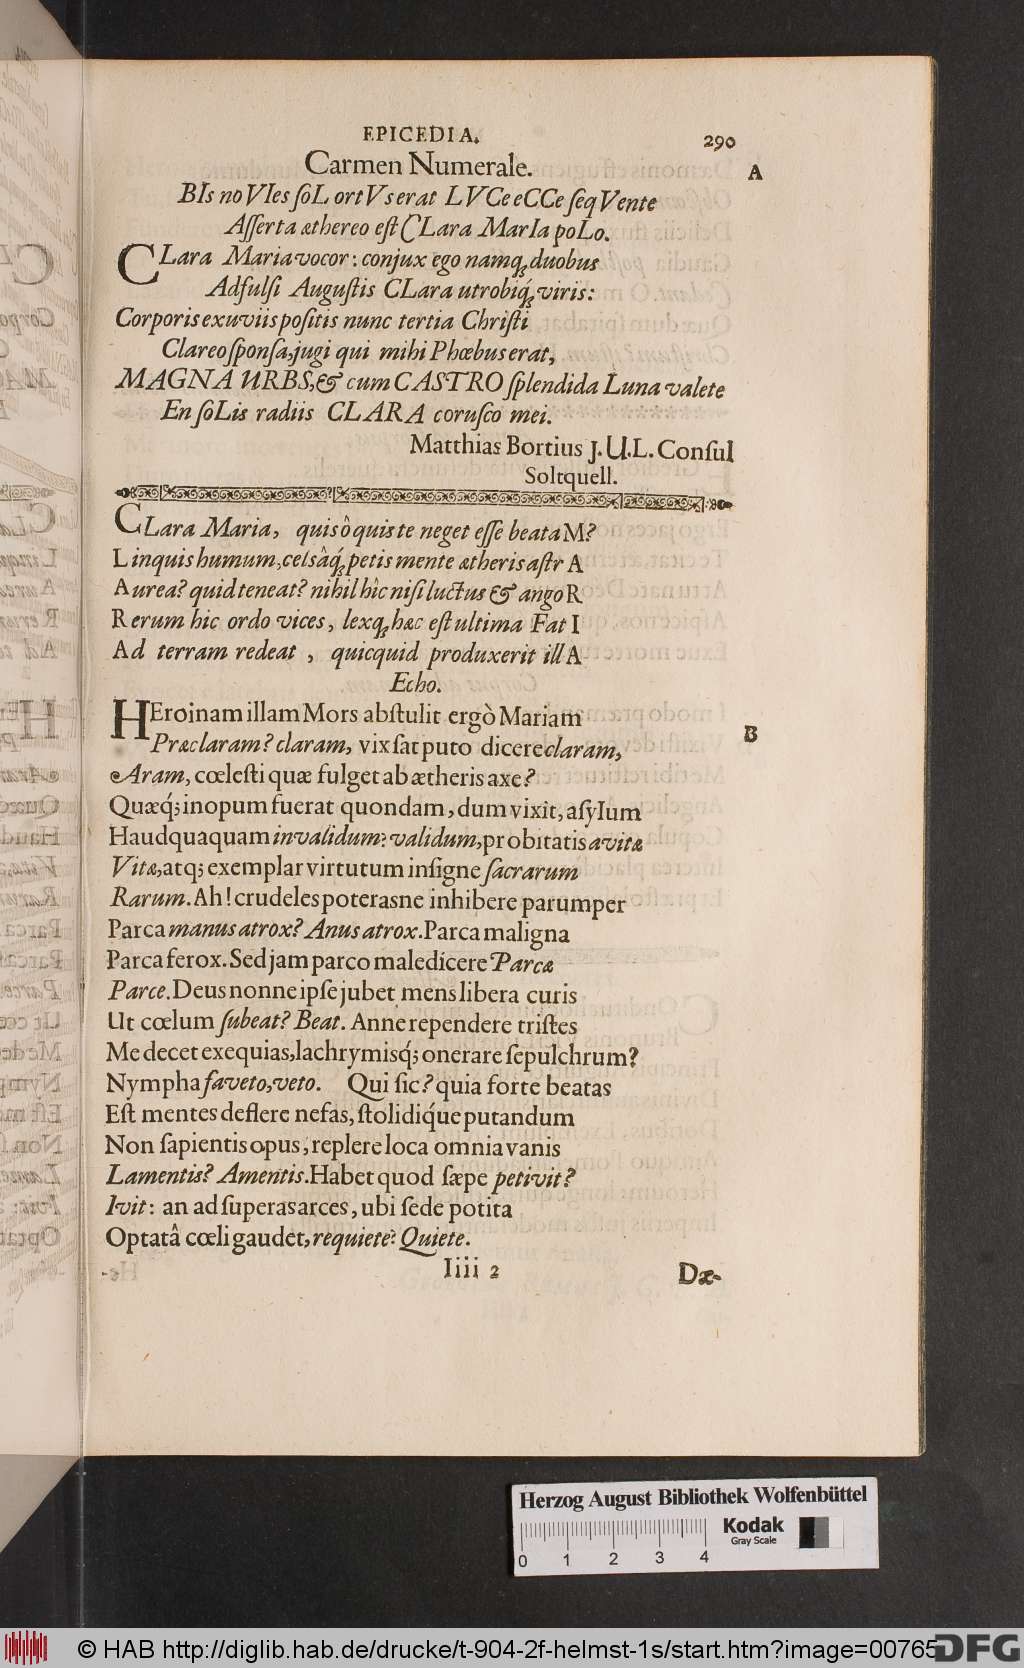 EPICEDIA.
290
Carmen Numerale.
A
BIs noVIes ſoL ortVs erat LVCe eCCe ſeqVente
Aſſerta æthereo eſt CLara MarIa poLo.
CLara Maria vocor: conjux ego namq́ꝫ duobus
Adfulſi Auguſtis CLara utrobiq́ꝫ viris:
Corporis exuviis poſitis nunc tertia Chriſti
Clareo ſponſa, jugi qui mihi Phœbus erat,
MAGNA URBS, & cum CASTRO ſplendida Luna valete
En ſoLis radiis CLARA coruſco mei.
Matthias Bortius J.U.L. Conſul
Soltquell.
CLara Maria, quis ô quis te neget eſſe beata M?
Linquis humum, celsâq́ꝫ petis mente ætheris aſtr A
Aurea? quid teneat? nihil hîc niſi luctus & ango R
Rerum hic ordo vices, lexqꝫ hæc eſt ultima Fat I
Ad terram redeat, quicquid produxerit ill A
Echo.
HEroinam illam Mors abſtulit ergò Mariam
Præclaram? claram, vix ſat puto dicere claram,
B
Aram, cœleſti quæ fulget ab ætheris axe?
Quæq́ꝫ inopum fuerat quondam, dum vixit, aſylum
Haudquaquam invalidum: validum, probitatis avitæ
Vitæ, atqꝫ exemplar virtutum inſigne ſacrarum
Rarum. Ah! crudeles poterasne inhibere parumper
Parca manus atrox? Anus atrox. Parca maligna
Parca ferox. Sed jam parco maledicere Parcæ
Parce. Deus nonne ipſe jubet mens libera curis
Ut cœlum ſubeat? Beat. Anne rependere triſtes
Me decet exequias, lachrymisq́ꝫ onerare ſepulchrum?
Nympha faveto, veto. Qui ſic? quia forte beatas
Eſt mentes deflere nefas, ſtolidiq́ue putandum
Non ſapientis opus, replere loca omnia vanis
Lamentis? Amentis. Habet quod ſæpe petivit?
Ivit: an ad ſuperas arces, ubi ſede potita
Optatâ cœli gaudet, requiete? Quiete.
Iiii 2
Dæ-
Herzog August Bibliothek Wolfenbüttel
0 1 2 3 4
Kodak
Gray Scale
© HAB http://diglib.hab.de/drucke/t-904-2f-helmst-1s/start.htm?image=00765
DFG